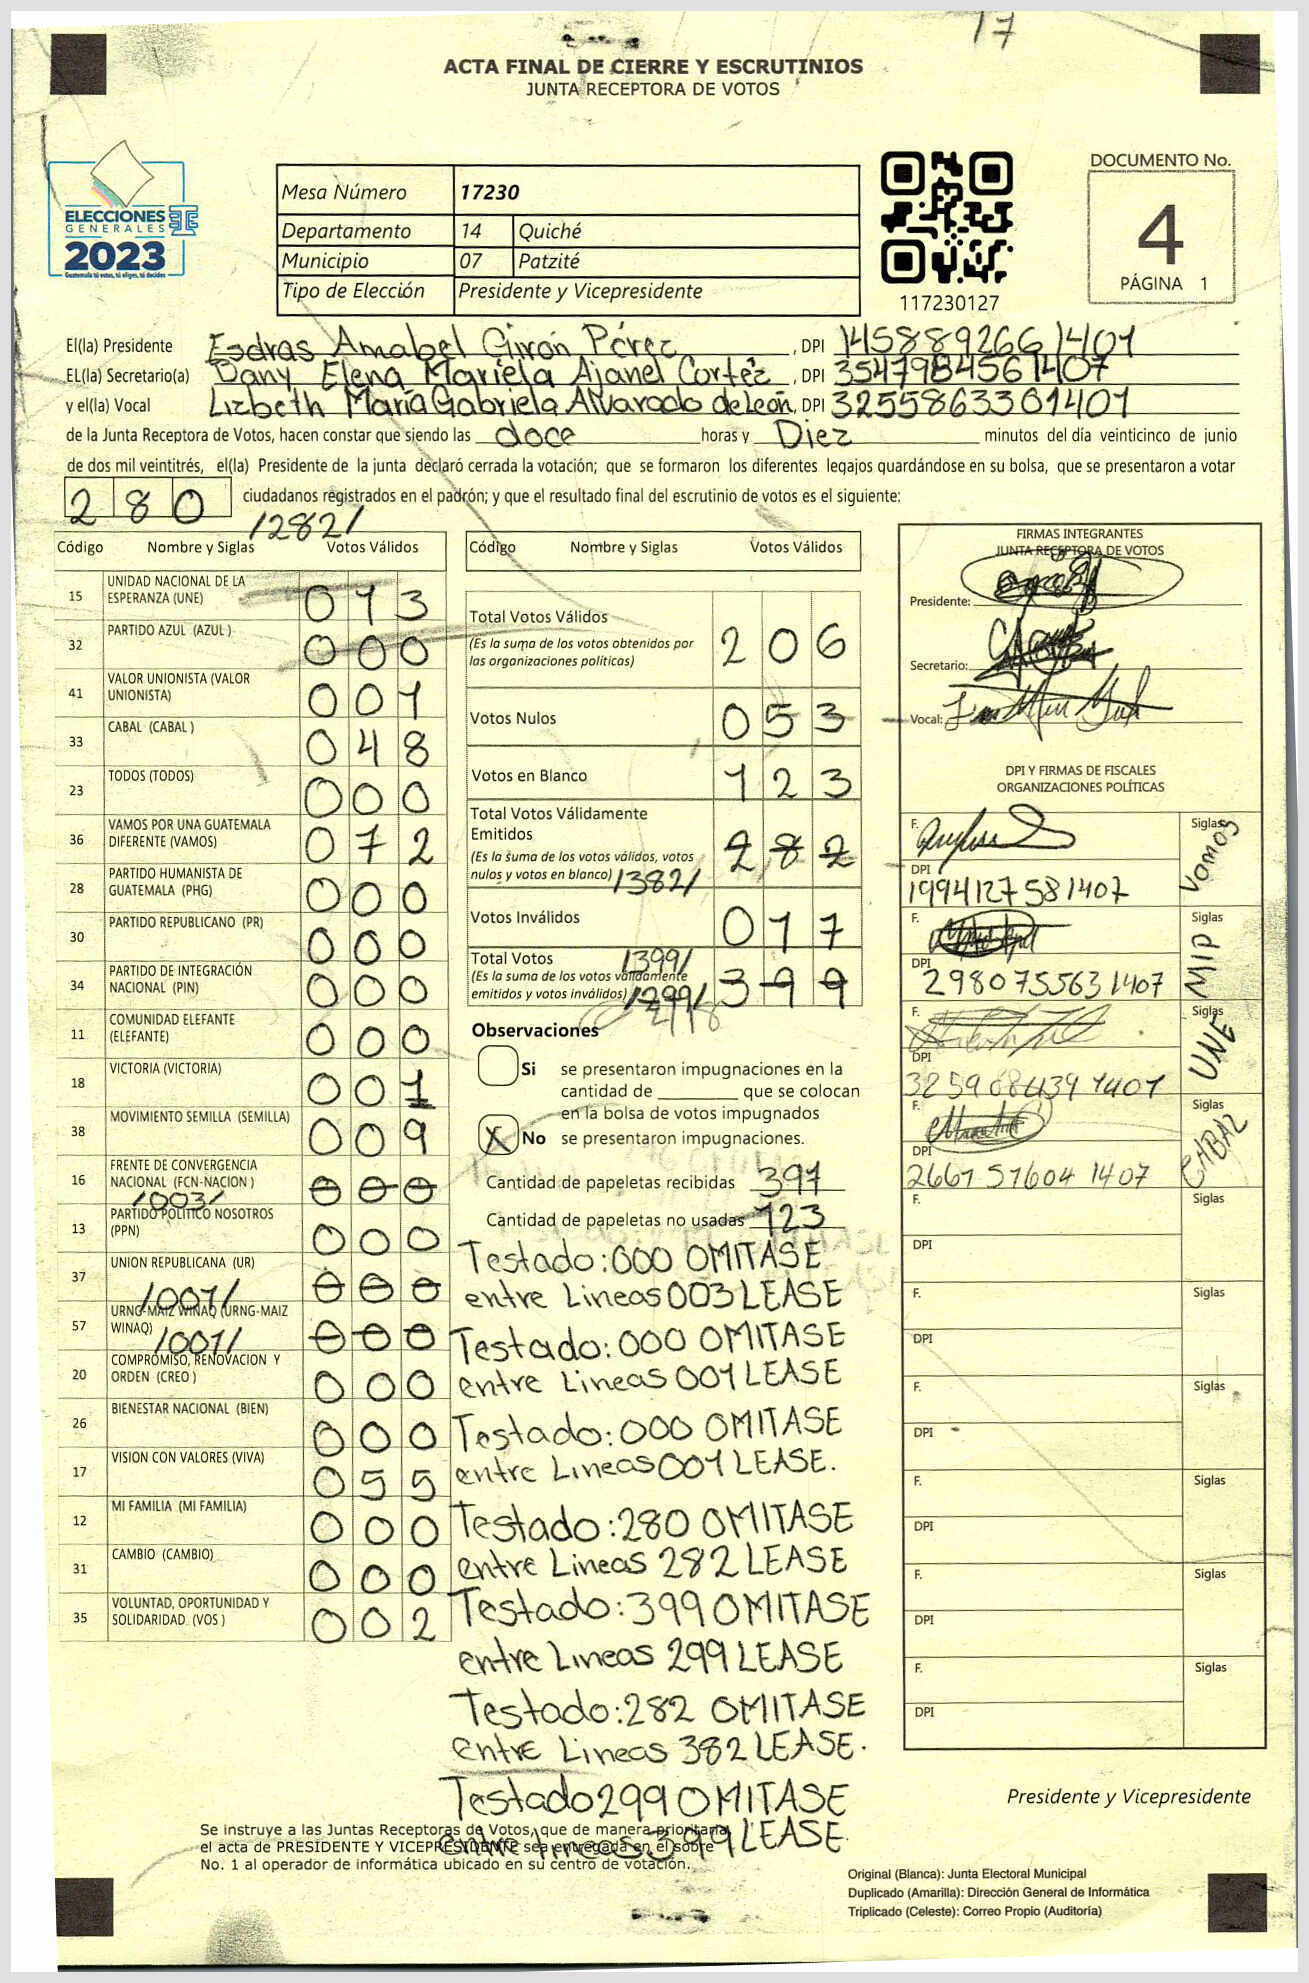 17
ACTA FINAL DE CIERRE Y ESCRUTINIOS
JUNTA RECEPTORA DE VOTOS
ELECCIONES
GENERALES
2023
Guatemala tú votas, tú eliges, tú decides
Mesa Número 17230
Departamento 14 Quiché
Municipio 07 Patzité
Tipo de Elección Presidente y Vicepresidente
117230127
DOCUMENTO No.
4
PÁGINA 1
El(la) Presidente Esdras Amabel Girón Pérez, DPI 1458892661401
EL(la) Secretario(a) Dany Elena Mariela Ajanel Cortéz, DPI 3547984561407
y el(la) Vocal Lizbeth María Gabriela Alvarado de León, DPI 3255863301401
de la Junta Receptora de Votos, hacen constar que siendo las doce horas y Diez minutos del día veinticinco de junio
de dos mil veintitrés, el(la) Presidente de la junta declaró cerrada la votación; que se formaron los diferentes legajos quardándose en su bolsa, que se presentaron a votar
280 ciudadanos registrados en el padrón; y que el resultado final del escrutinio de votos es el siguiente:
/282/
Código Nombre y Siglas Votos Válidos
15 UNIDAD NACIONAL DE LA ESPERANZA (UNE) 013
32 PARTIDO AZUL (AZUL ) 000
41 VALOR UNIONISTA (VALOR UNIONISTA) 001
33 CABAL (CABAL ) 048
23 TODOS (TODOS) 000
36 VAMOS POR UNA GUATEMALA DIFERENTE (VAMOS) 072
28 PARTIDO HUMANISTA DE GUATEMALA (PHG) 000
30 PARTIDO REPUBLICANO (PR) 000
34 PARTIDO DE INTEGRACIÓN NACIONAL (PIN) 000
11 COMUNIDAD ELEFANTE (ELEFANTE) 000
18 VICTORIA (VICTORIA) 001
38 MOVIMIENTO SEMILLA (SEMILLA) 009
16 FRENTE DE CONVERGENCIA NACIONAL (FCN-NACION ) 000
/003/
13 PARTIDO POLITICO NOSOTROS (PPN) 000
37 UNION REPUBLICANA (UR) 000
/001/
57 URNG-MAIZ WINAQ (URNG-MAIZ WINAQ) 000
/001/
20 COMPROMISO, RENOVACION Y ORDEN (CREO ) 000
26 BIENESTAR NACIONAL (BIEN) 000
17 VISION CON VALORES (VIVA) 055
12 MI FAMILIA (MI FAMILIA) 000
31 CAMBIO (CAMBIO) 000
35 VOLUNTAD, OPORTUNIDAD Y SOLIDARIDAD (VOS ) 002
Código Nombre y Siglas Votos Válidos
Total Votos Válidos 206
(Es la suma de los votos obtenidos por
las organizaciones políticas)
Votos Nulos 053
Votos en Blanco 123
Total Votos Válidamente
Emitidos 282
(Es la suma de los votos válidos, votos
nulos y votos en blanco) /382/
Votos Inválidos 017
Total Votos /399/
(Es la suma de los votos válidamente
emitidos y votos inválidos) /299/ 399
Observaciones
Si se presentaron impugnaciones en la
cantidad de ________ que se colocan
en la bolsa de votos impugnados
X No se presentaron impugnaciones.
Cantidad de papeletas recibidas 397
Cantidad de papeletas no usadas 123
Testado:000 OMITASE
entre Lineas 003 LEASE
Testado:000 OMITASE
entre Lineas 001 LEASE
Testado:000 OMITASE
entre Lineas 001 LEASE.
Testado:280 OMITASE
entre Lineas 282 LEASE
Testado:399 OMITASE
entre Lineas 299 LEASE
Testado:282 OMITASE
entre Lineas 382 LEASE.
Testado 299 OMITASE
entre lineas 399 LEASE.
FIRMAS INTEGRANTES
JUNTA RECEPTORA DE VOTOS
Presidente:
Secretario:
Vocal:
DPI Y FIRMAS DE FISCALES
ORGANIZACIONES POLÍTICAS
F. Siglas Vamos
DPI 1994127581407
F. Siglas MIP
DPI 2980755631407
F. Siglas UNE
DPI 3259084391401
F. Siglas CABAL
DPI 2667576041407
F. Siglas
DPI
F. Siglas
DPI
F. Siglas
DPI
F. Siglas
DPI
F. Siglas
DPI
F. Siglas
DPI
Presidente y Vicepresidente
Se instruye a las Juntas Receptoras de Votos, que de manera prioritaria,
el acta de PRESIDENTE Y VICEPRESIDENTE sea entregada en el sobre
No. 1 al operador de informática ubicado en su centro de votación.
Original (Blanca): Junta Electoral Municipal
Duplicado (Amarilla): Dirección General de Informática
Triplicado (Celeste): Correo Propio (Auditoría)